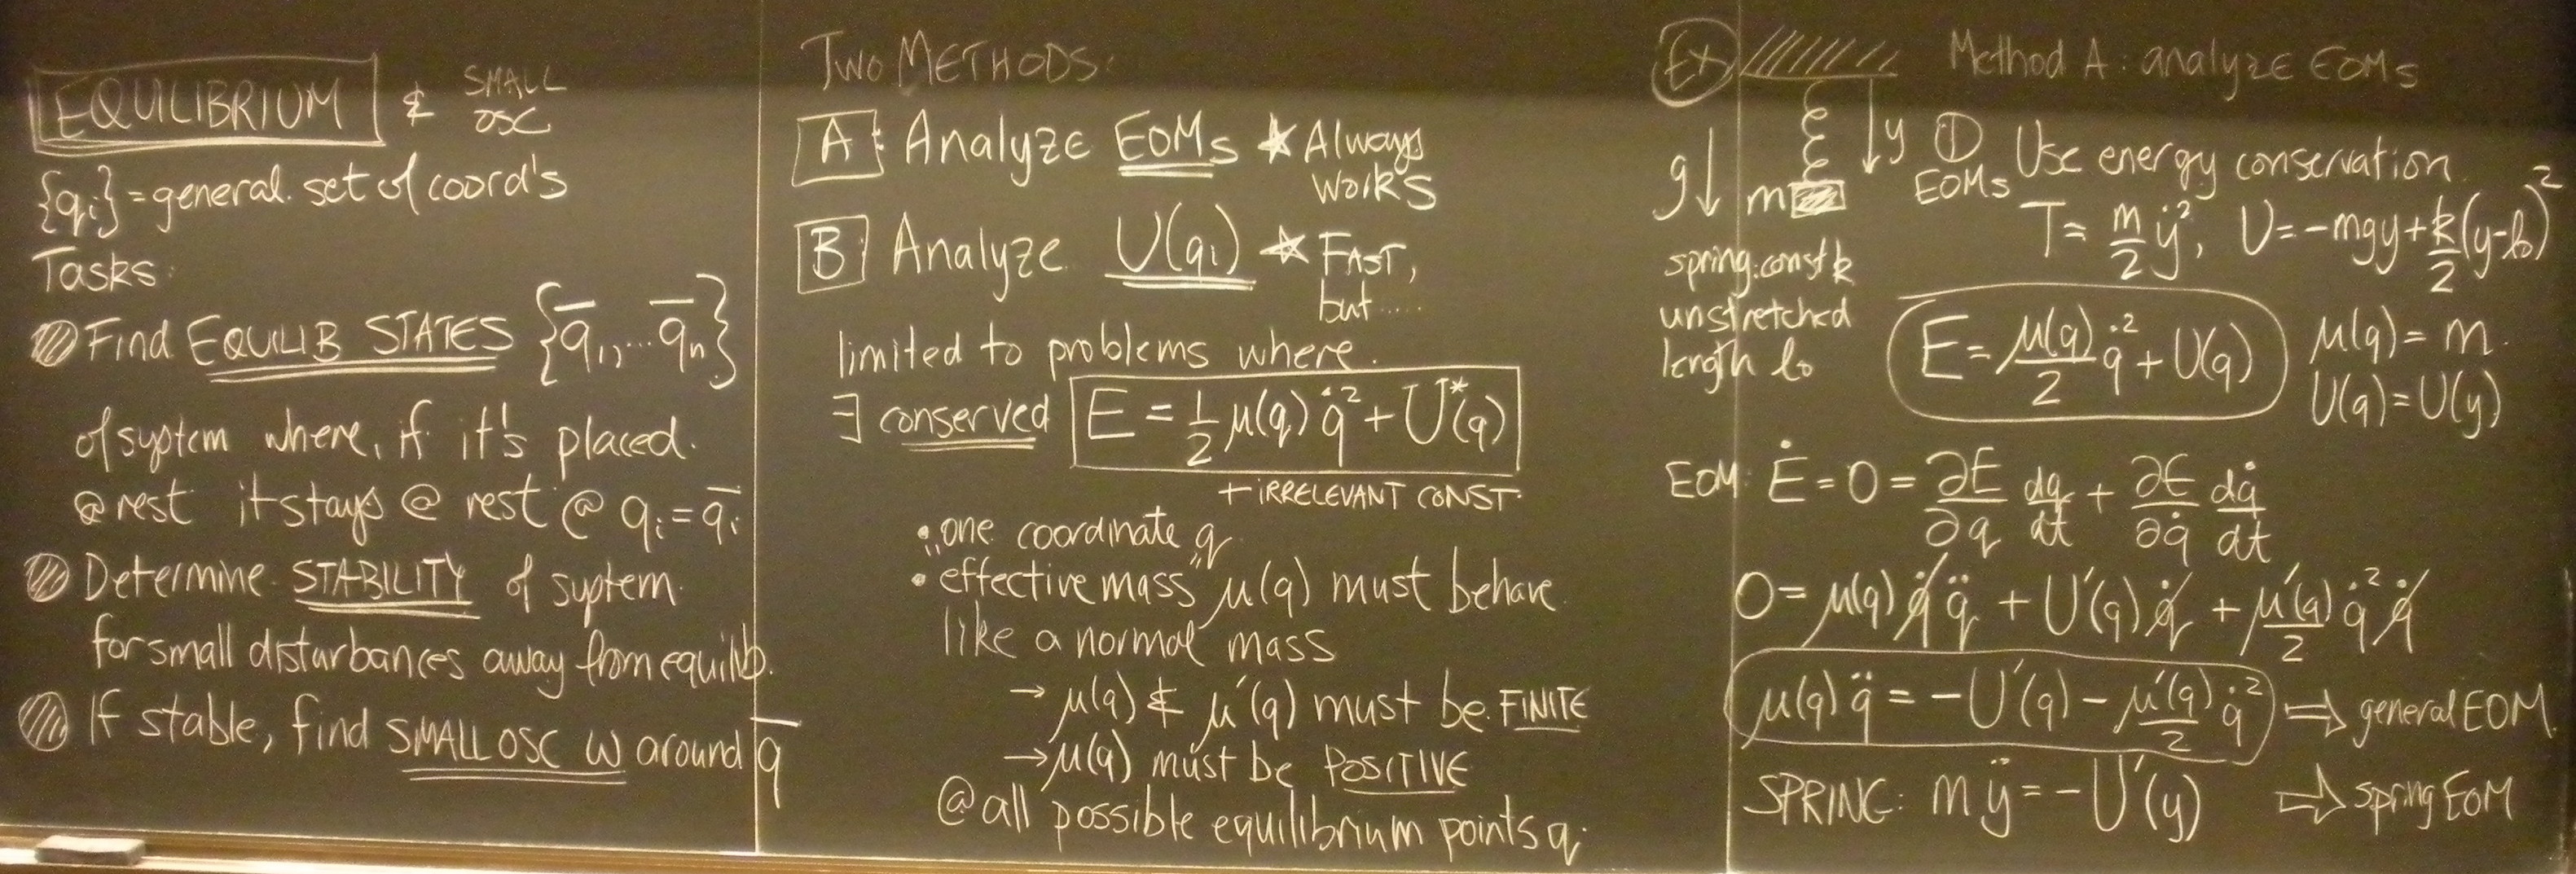 EQUILIBRIUM & SMALL OSC
{qᵢ} = general. set of coord's
Tasks:
Find EQUILIB STATES {q̄₁,... q̄ₙ}
of system where, if it's placed.
@ rest it stays @ rest @ qᵢ = q̄ᵢ
Determine STABILITY of system
for small disturbances away from equilib.
If stable, find SMALL OSC ω around q̄
TWO METHODS:
A: Analyze EOMs ★ Always works
B Analyze U(qᵢ) ★ FAST, but.....
limited to problems where.
∃ conserved E = ½ μ(q) q̇² + U*(q)
+ IRRELEVANT CONST.
• one coordinate q
• "effective mass" μ(q) must behave
like a normal mass
→ μ(q) & μ′(q) must be FINITE
→ μ(q) must be POSITIVE
@ all possible equilibrium points q.
Ex
g↓ m ↓y
spring const k
unstretched
length l₀
Method A: analyze EOMs
① EOMs Use energy conservation.
T = m/2 ẏ², U = -mgy + k/2 (y-l₀)²
E = μ(q)/2 q̇² + U(q)
μ(q) = m
U(q) = U(y)
EOM: Ė = 0 = ∂E/∂q dq/dt + ∂E/∂q̇ dq̇/dt
0 = μ(q) q̇ q̈ + U′(q) q̇ + μ′(q)/2 q̇² q̇
μ(q) q̈ = -U′(q) - μ′(q)/2 q̇² ⇒ general EOM.
SPRING: m ÿ = -U′(y) ⇒ spring EOM